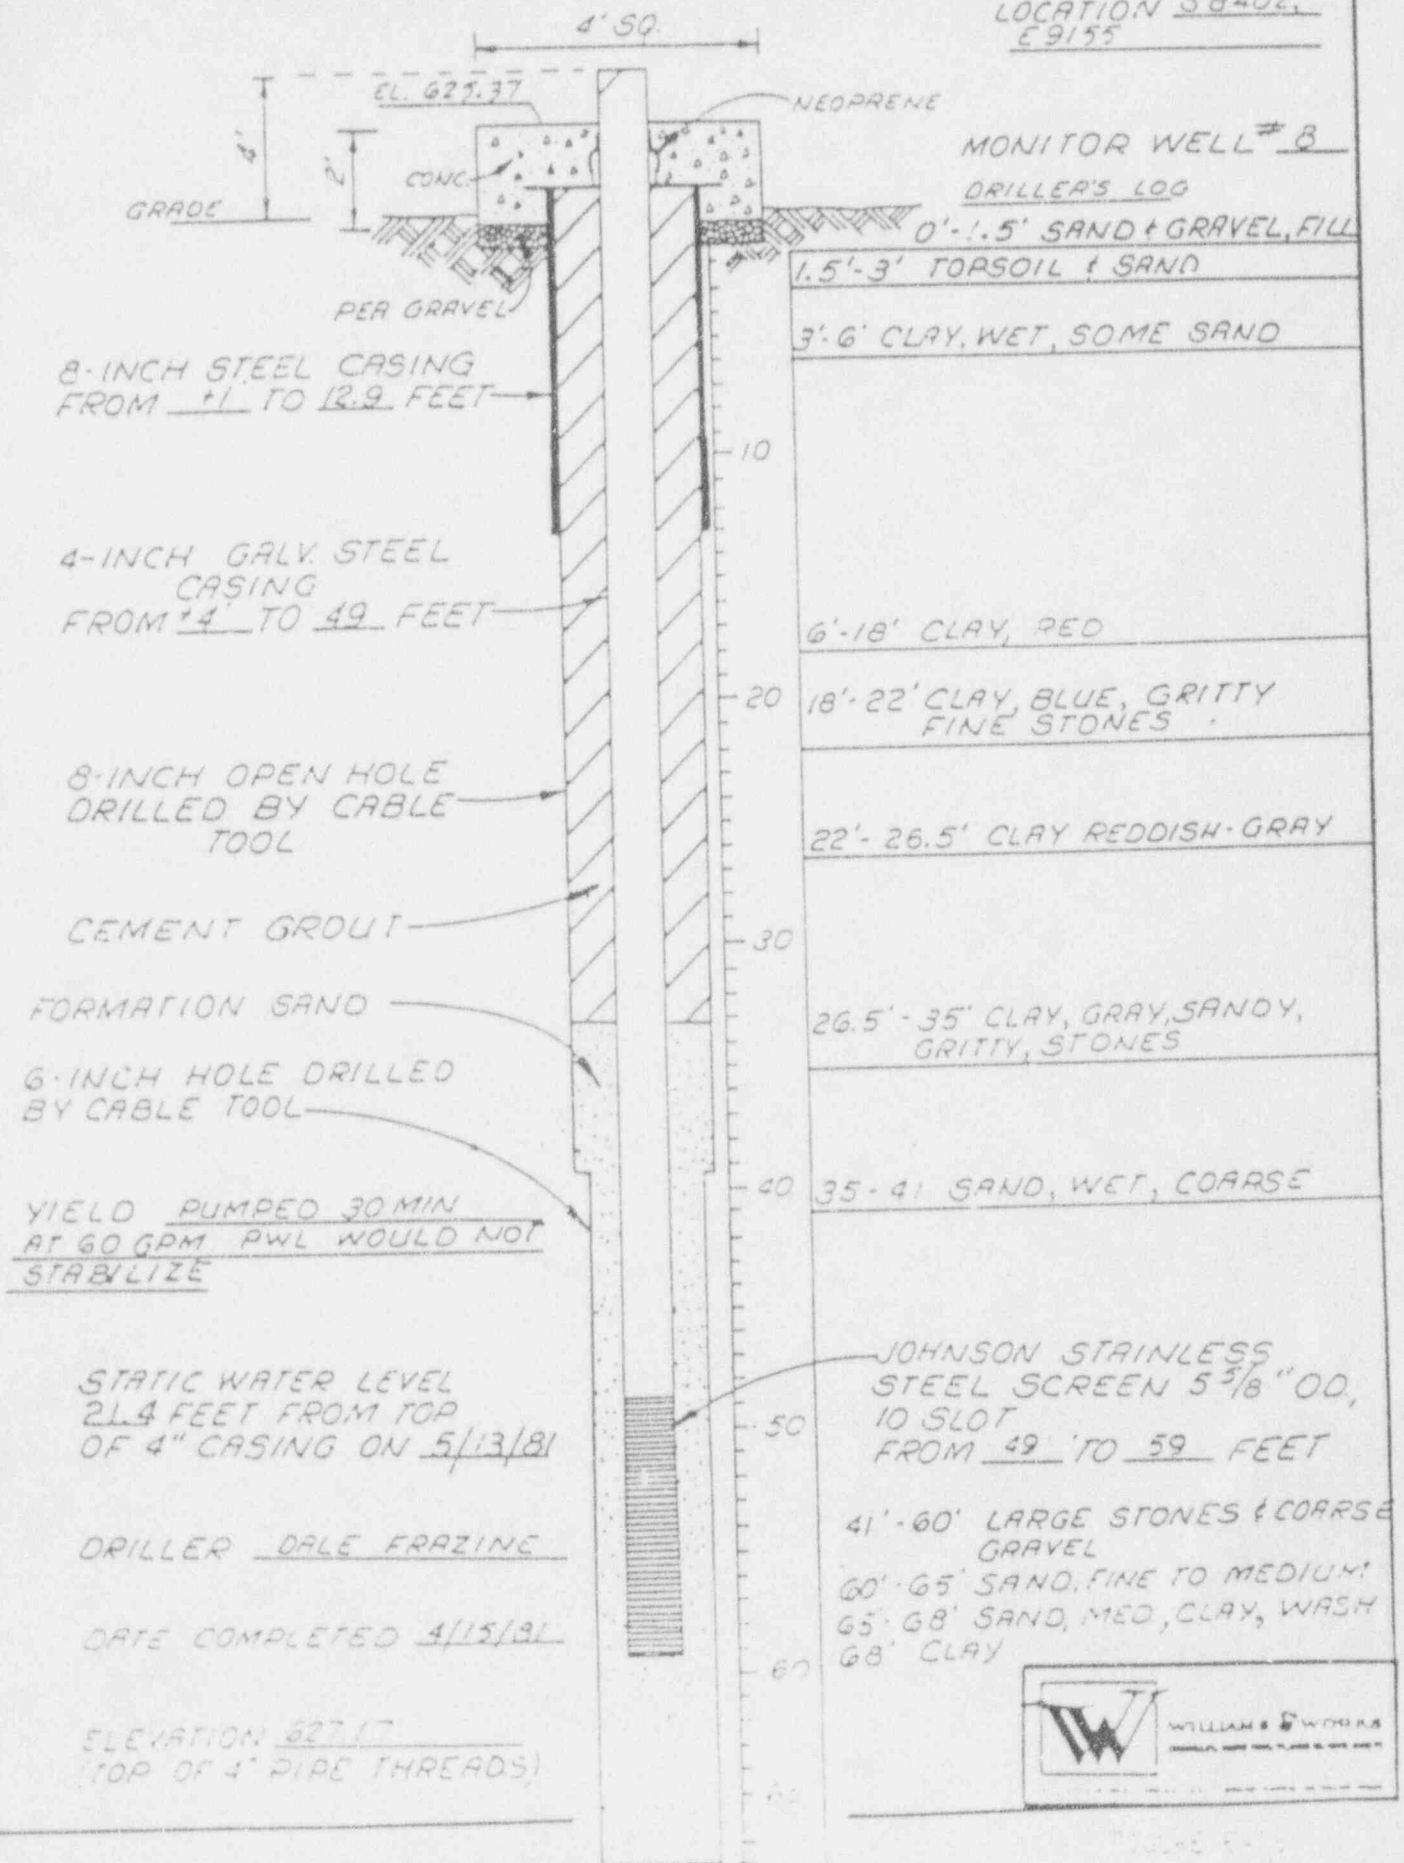 LOCATION
E9155
4' SQ.
EL. 625.37
NEOPRENE
4'
2'
CONC.
GRADE
PEA GRAVEL
MONITOR WELL # 8
DRILLER'S LOG
0'-1.5' SAND & GRAVEL, FILL
1.5'-3' TOPSOIL & SAND
3'-6' CLAY, WET, SOME SAND
8-INCH STEEL CASING
FROM +1 TO 12.9 FEET
10
4-INCH GALV. STEEL
CASING
FROM +4' TO 49 FEET
6'-18' CLAY, RED
20
18'-22' CLAY, BLUE, GRITTY
FINE STONES
8-INCH OPEN HOLE
DRILLED BY CABLE
TOOL
22'-26.5' CLAY REDDISH-GRAY
CEMENT GROUT
30
FORMATION SAND
26.5'-35' CLAY, GRAY, SANDY,
GRITTY, STONES
6-INCH HOLE DRILLED
BY CABLE TOOL
40
35-41 SAND, WET, COARSE
YIELD PUMPED 30 MIN
AT 60 GPM PWL WOULD NOT
STABILIZE
JOHNSON STAINLESS
STEEL SCREEN 5 5/8" OD,
10 SLOT
FROM 49 TO 59 FEET
50
STATIC WATER LEVEL
21.4 FEET FROM TOP
OF 4" CASING ON 5/13/81
41'-60' LARGE STONES & COARSE
GRAVEL
60'-65' SAND, FINE TO MEDIUM
65-68' SAND, MED, CLAY, WASH
68' CLAY
DRILLER DALE FRAZINE
DATE COMPLETED 4/15/81
60
ELEVATION 627.17
(TOP OF 4" PIPE THREADS)
W
WILLIAMS & WORKS